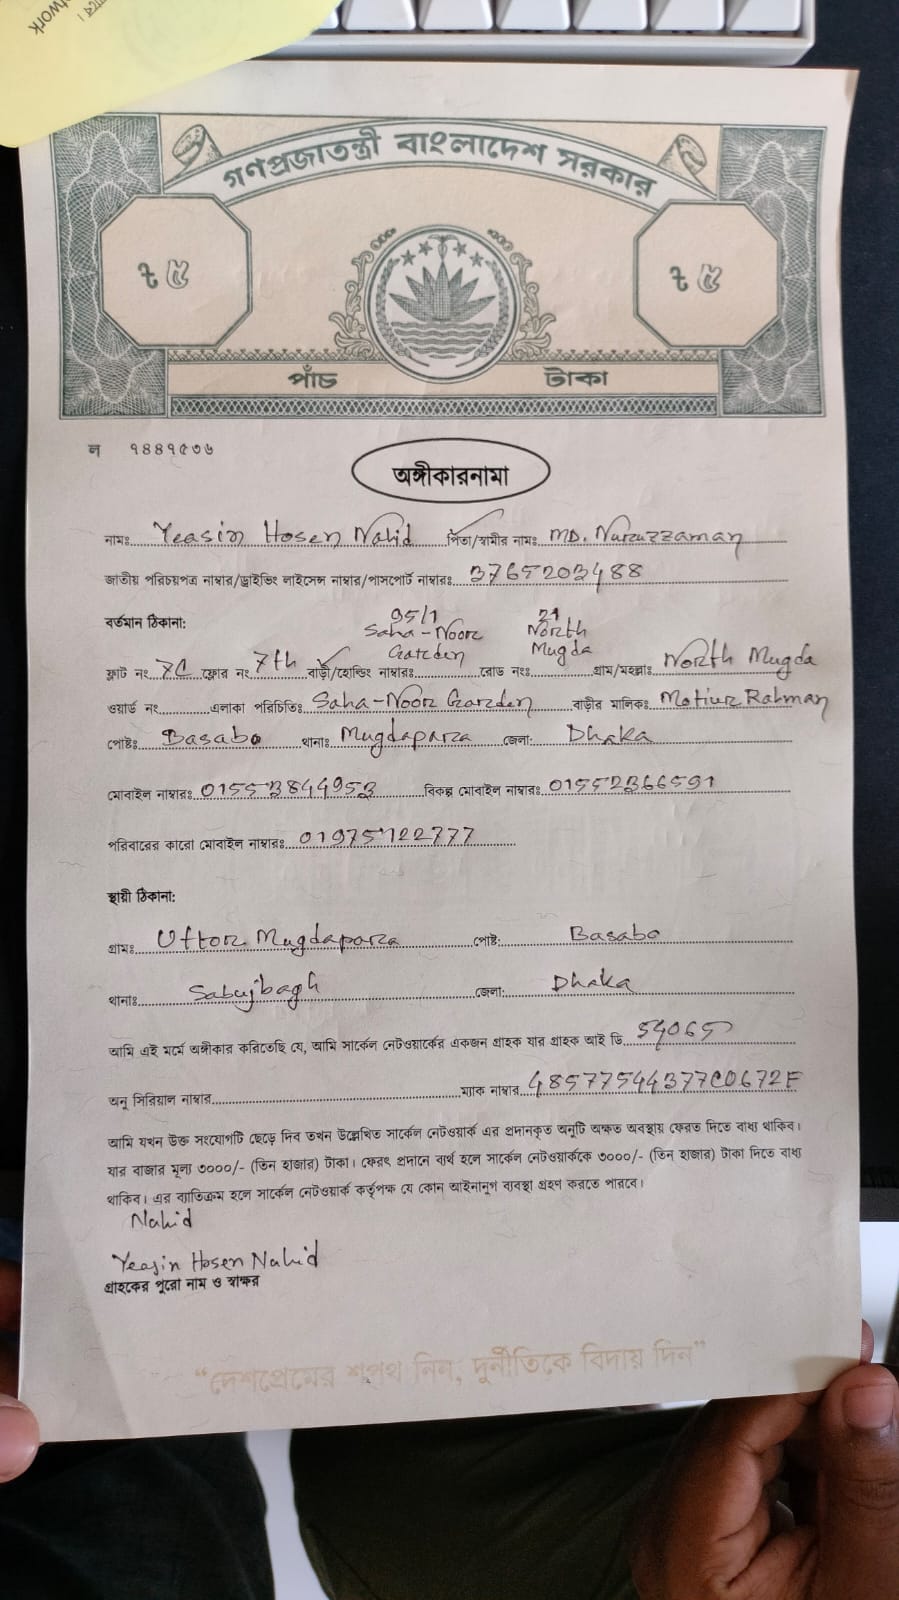 work
গণপ্রজাতন্ত্রী বাংলাদেশ সরকার
৳ ৫ ৳ ৫
পাঁচ টাকা
ল
অঙ্গীকারনামা
নামঃ Yeasin Hosen Nahid পিতা/স্বামীর নামঃ MD. Nuruzzaman
জাতীয় পরিচয়পত্র নাম্বার/ড্রাইভিং লাইসেন্স নাম্বার/পাসপোর্ট নাম্বারঃ 3765203488
বর্তমান ঠিকানা:
95/1 Saha-Noor Garden North Mugda
ফ্লাট নং 7C ফ্লোর নং 7th বাড়ী/হোল্ডিং নাম্বারঃ রোড নংঃ গ্রাম/মহল্লাঃ North Mugda
ওয়ার্ড নং এলাকা পরিচিতিঃ Saha-Noor Garden বাড়ীর মালিকঃ Motiur Rahman
পোষ্টঃ Basabo থানাঃ Mugdapara জেলা: Dhaka
মোবাইল নাম্বারঃ বিকল্প মোবাইল নাম্বারঃ 01552366591
পরিবারের কারো মোবাইল নাম্বারঃ 01975122777
স্থায়ী ঠিকানা:
গ্রামঃ Uttor Mugdapara পোষ্ট: Basabo
থানাঃ Sabujbagh জেলা: Dhaka
আমি এই মর্মে অঙ্গীকার করিতেছি যে, আমি সার্কেল নেটওয়ার্কের একজন গ্রাহক যার গ্রাহক আই ডি
অনু সিরিয়াল নাম্বার ম্যাক নাম্বার 48577544377C0672F
আমি যখন উক্ত সংযোগটি ছেড়ে দিব তখন উল্লেখিত সার্কেল নেটওয়ার্ক এর প্রদানকৃত অনুটি অক্ষত অবস্থায় ফেরত দিতে বাধ্য থাকিব।
যার বাজার মূল্য ৩০০০/- (তিন হাজার) টাকা। ফেরৎ প্রদানে ব্যর্থ হলে সার্কেল নেটওয়ার্ককে ৩০০০/- (তিন হাজার) টাকা দিতে বাধ্য
থাকিব। এর ব্যতিক্রম হলে সার্কেল নেটওয়ার্ক কর্তৃপক্ষ যে কোন আইনানুগ ব্যবস্থা গ্রহণ করতে পারবে।
Nahid
Yeasin Hosen Nahid
গ্রাহকের পুরো নাম ও স্বাক্ষর
“দেশপ্রেমের শপথ নিন, দুর্নীতিকে বিদায় দিন”